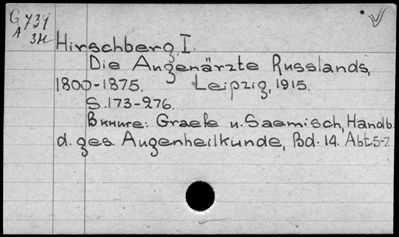 G 739
A 3H
Hirschberg, I.
Die Augenärzte Russlands,
1800-1875. Leipzig, 1915.
S. 173-276.
В книге: Graefe u. Saemisch, Handb.
d. ges. Augenheilkunde, Bd. 14. Abt. 5-7.